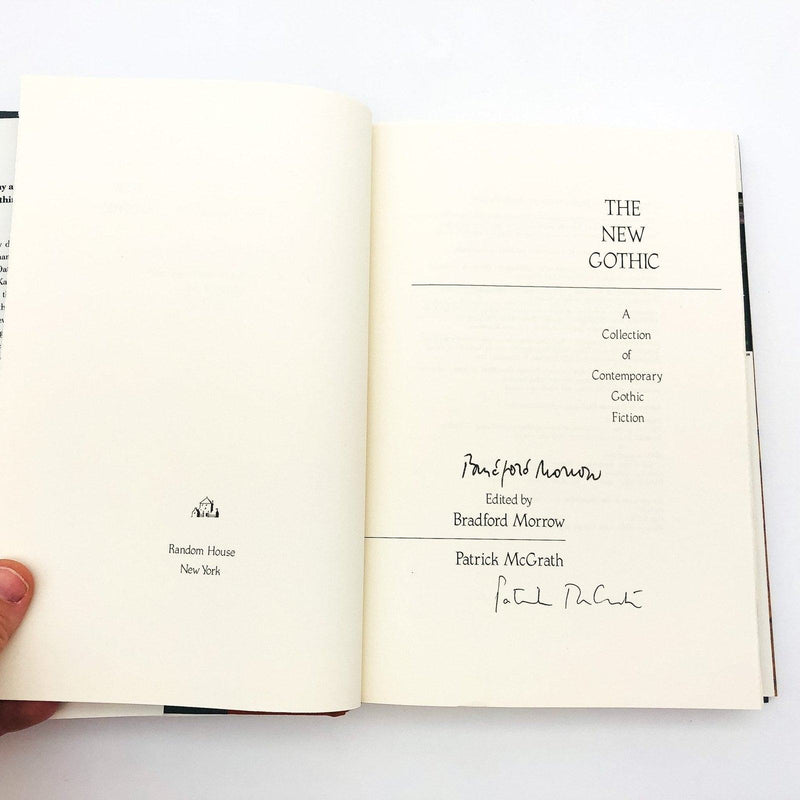 Random House
New York
THE
NEW
GOTHIC
A
Collection
of
Contemporary
Gothic
Fiction
Bradford Morrow
Edited by
Bradford Morrow
Patrick McGrath
Patrick McGrath